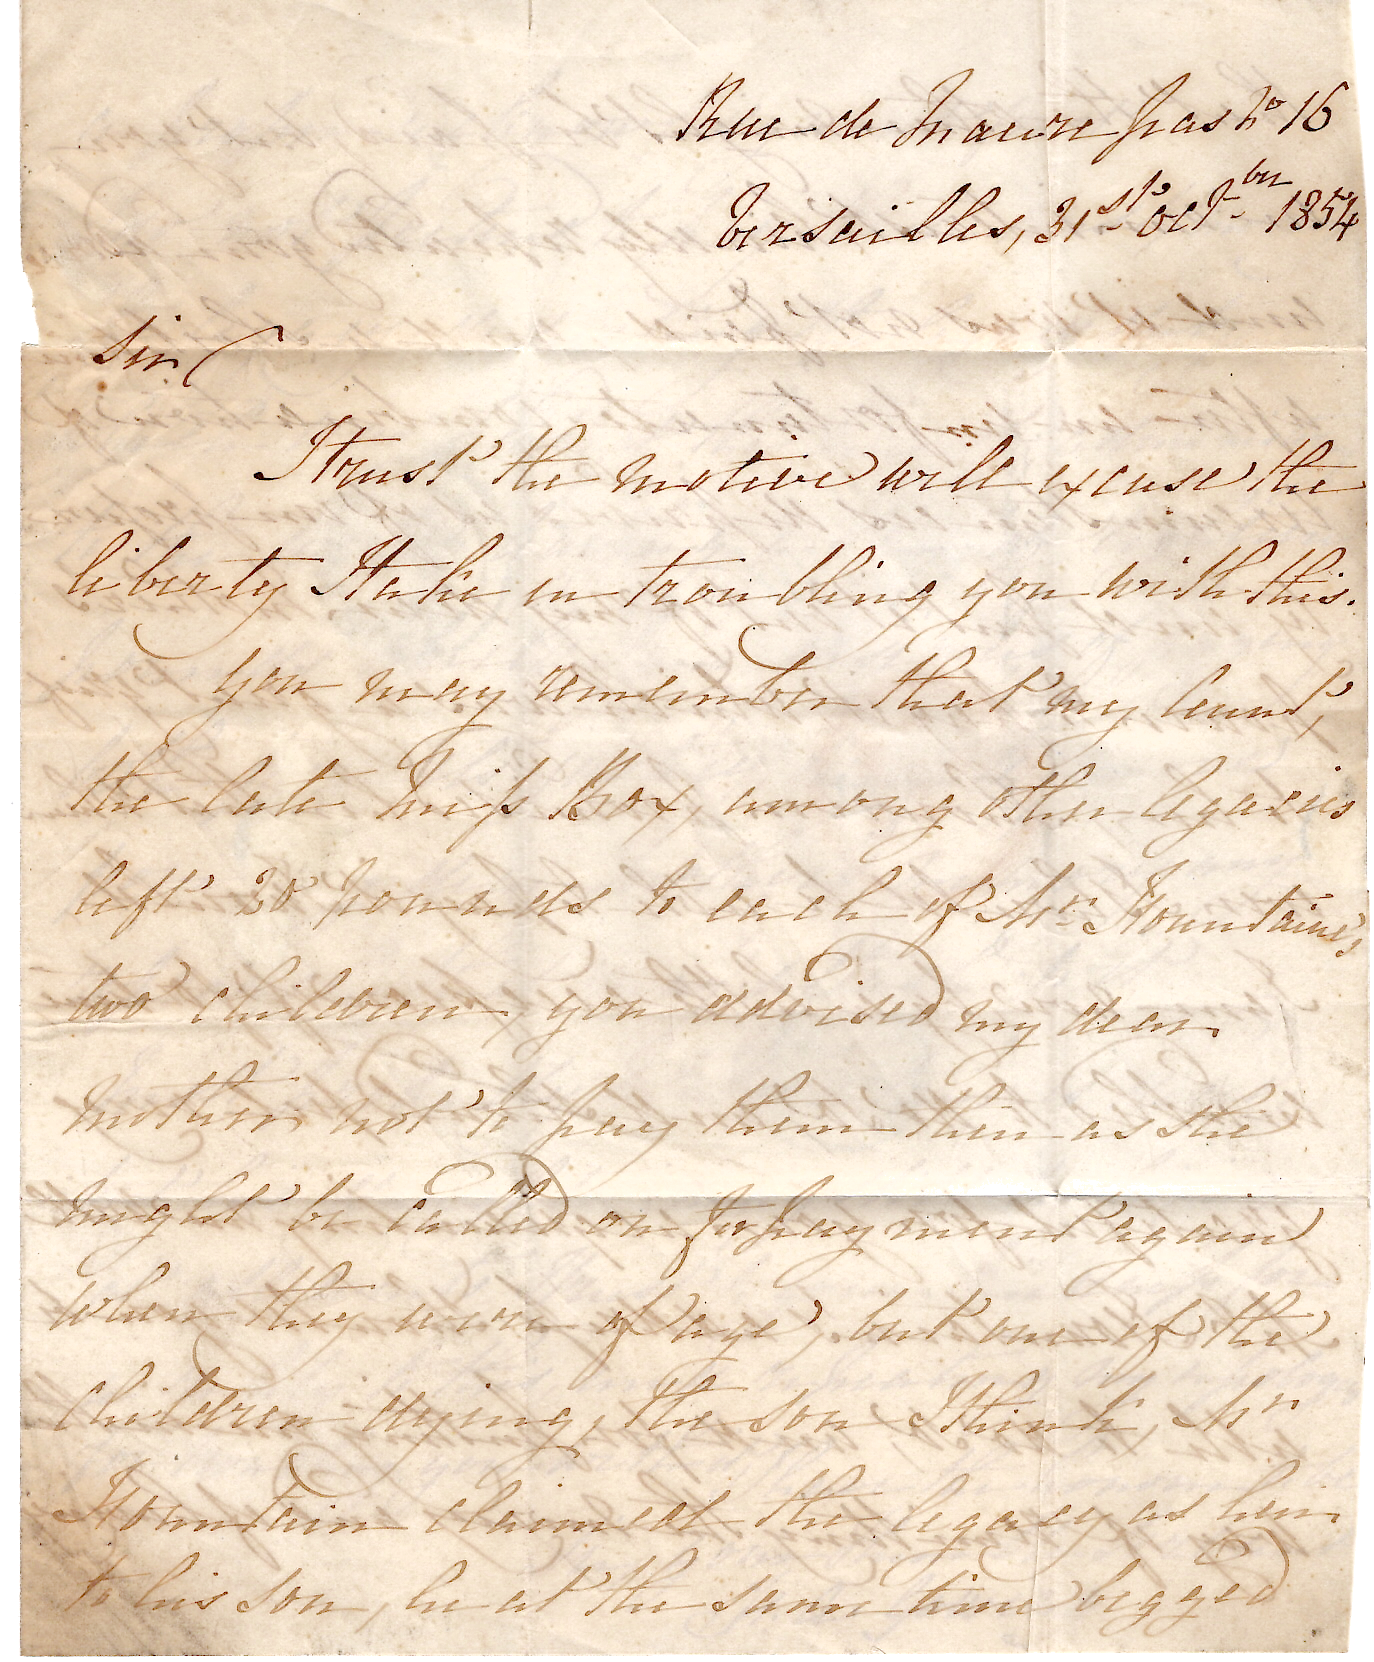 Rue de Maurepas No 16
Versailles, 31st Octber 1854
Sir
I trust the motive will excuse the
liberty I take in troubling you with this.
You may remember that my Aunt,
the late Miss Box, among other legacies
left 20 pounds to each of Mr. Fountaine's
two children, you advised my dear
mother not to pay them then as she
might be called on for payment again
when they were of age, but one of the
children dying, the son I think, Mr
Fountain claimed the legacy as heir
to his son, he at the same time begged